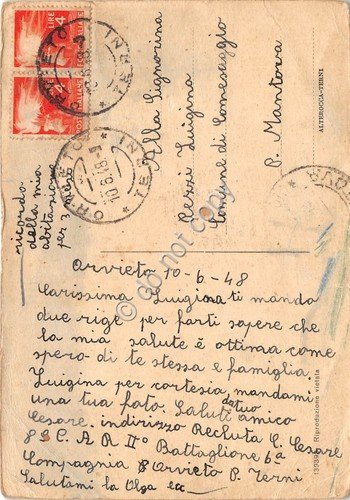 Orvieto 10-6-48
Carissima Luigina ti mando
due rige per farti sapere che
la mia salute è ottima come
spero di te stessa e famiglia
Luigina per cortesia mandami
una tua foto. Saluti dal tuo amico
Cesare. indirizzo Recluta C. Cesare
8º C.A.R IIº Battaglione 6ª
Compagnia 8 Orvieto P. Terni
Salutami la Olga ecc
ricordo
della mia
abitazione
per 3 mesi
Alla Signorina
Pezzi Luigina
Comune di Comessaggio
P. Mantova
ALTEROCCA-TERNI
Riproduzione vietata
ORVIETO
TERNI
10.6.48
ORVIETO
TERNI
10.6.48
4
4
do not copy